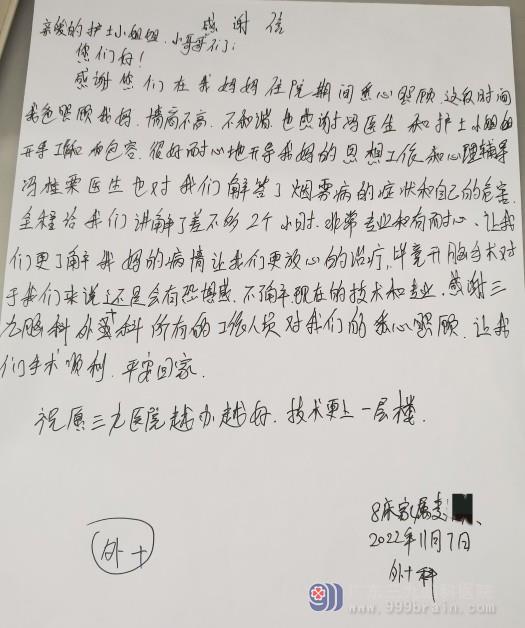 感谢信
亲爱的护士小姐姐、小哥哥们:
您们好!
感谢您们在我妈妈住院期间悉心照顾,这段时间
我色照顾我妈,情商不高,不和谐,也感谢冯医生和护士小姐姐
开导工作和的包容,很好耐心地开导我妈的思想工作和心理辅导
冯桂栗医生也对我们解答了烟雾病的症状和自己的危害,
全程给我们讲解了差不多2个小时,非常专业和有耐心,让我
们更了解我妈的病情让我们更放心的治疗,毕竟开脑手术对
于我们来说还是会有恐惧感,不了解现在的技术和专业,感谢三
九脑科外十科所有的工作人员对我们的悉心照顾,让我
们手术顺利,平安回家。
祝愿三九医院越办越好,技术更上一层楼。
8床家属
2022年11月7日
外十科
外十
广东三九脑科医院
www.999brain.com